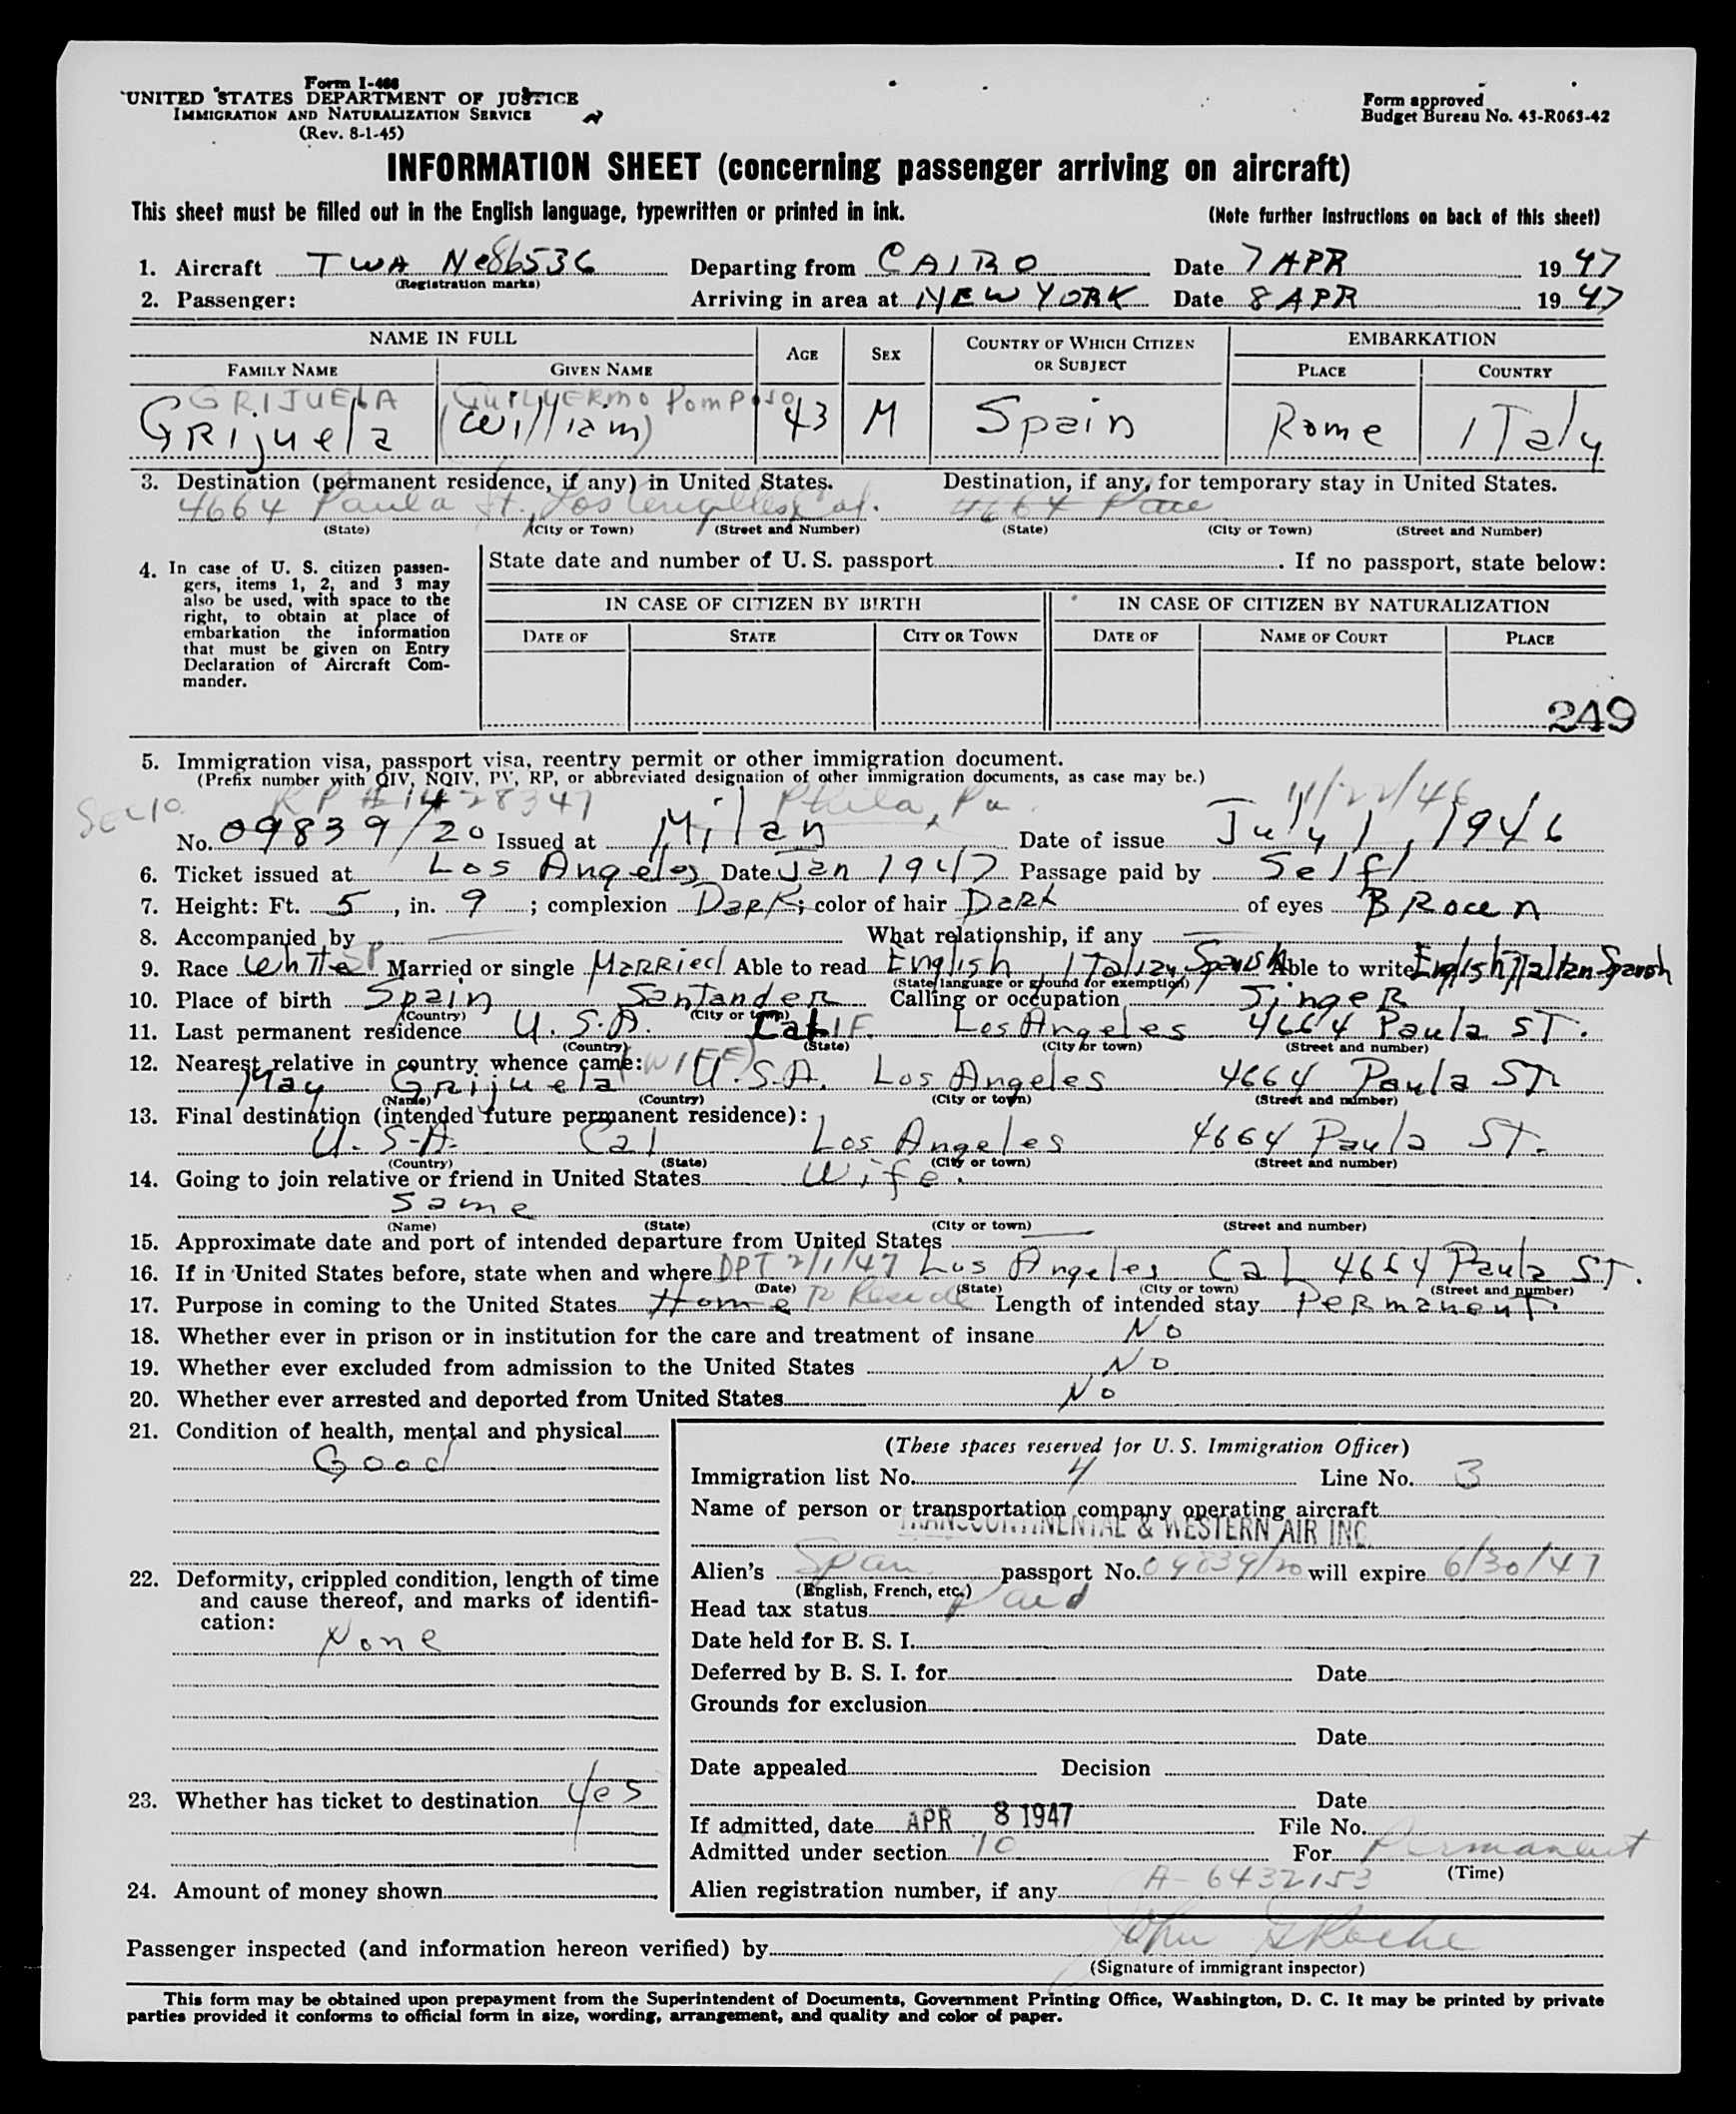 Form I-466
UNITED STATES DEPARTMENT OF JUSTICE
IMMIGRATION AND NATURALIZATION SERVICE
(Rev. 8-1-45)
Form approved
Budget Bureau No. 43-R063-42
INFORMATION SHEET (concerning passenger arriving on aircraft)
This sheet must be filled out in the English language, typewritten or printed in ink. (Note further instructions on back of this sheet)
1. Aircraft TWA Nc86536 Departing from CAIRO Date 7 APR 1947
(Registration marks)
2. Passenger: Arriving in area at NEW YORK Date 8 APR 1947
NAME IN FULL AGE SEX COUNTRY OF WHICH CITIZEN OR SUBJECT EMBARKATION
FAMILY NAME GIVEN NAME PLACE COUNTRY
GRIJUELA GUILLERMO Pomposo
GRIJuela (William) 43 M Spain Rome ITaly
3. Destination (permanent residence, if any) in United States. Destination, if any, for temporary stay in United States.
4664 Paula St. Los Angeles, Cal. 4664 Pau
(State) (City or Town) (Street and Number) (State) (City or Town) (Street and Number)
4. In case of U. S. citizen passen-
gers, items 1, 2, and 3 may
also be used, with space to the
right, to obtain at place of
embarkation the information
that must be given on Entry
Declaration of Aircraft Com-
mander.
State date and number of U. S. passport. If no passport, state below:
IN CASE OF CITIZEN BY BIRTH IN CASE OF CITIZEN BY NATURALIZATION
DATE OF STATE CITY OR TOWN DATE OF NAME OF COURT PLACE
249
5. Immigration visa, passport visa, reentry permit or other immigration document.
(Prefix number with QIV, NQIV, PV, RP, or abbreviated designation of other immigration documents, as case may be.)
Sec 10 RP # 1428347 Phila, Pa. 11/22/46
No. 09839/20 Issued at Milan Date of issue July 1, 1946
6. Ticket issued at Los Angeles Date Jan 1947 Passage paid by Self
7. Height: Ft. 5, in. 9; complexion Dark; color of hair Dark of eyes BRown
8. Accompanied by — What relationship, if any —
9. Race White SP Married or single MARRIed Able to read English, ITalian, Spanish Able to write English ITalian Spanish
(State language or ground for exemption)
10. Place of birth Spain SanTander Calling or occupation SingeR
(Country) (City or town)
11. Last permanent residence U. S. A. CalIF. Los Angeles 4664 Paula ST.
(Country) (State) (City or town) (Street and number)
12. Nearest relative in country whence came: (WIFE)
May GRijuela U.S.A. Los Angeles 4664 Paula ST
(Name) (Country) (City or town) (Street and number)
13. Final destination (intended future permanent residence):
U. S. A. Cal Los Angeles 4664 Paula ST.
(Country) (State) (City or town) (Street and number)
14. Going to join relative or friend in United States Wife.
Same
(Name) (State) (City or town) (Street and number)
15. Approximate date and port of intended departure from United States —
16. If in United States before, state when and where DPT 2/1/47 Los Angeles Cal 4664 Paula ST.
(Date) (State) (City or town) (Street and number)
17. Purpose in coming to the United States Home To Reside Length of intended stay PeRmanenT.
18. Whether ever in prison or in institution for the care and treatment of insane No
19. Whether ever excluded from admission to the United States No
20. Whether ever arrested and deported from United States No
21. Condition of health, mental and physical
Good
22. Deformity, crippled condition, length of time
and cause thereof, and marks of identifi-
cation:
None
23. Whether has ticket to destination Yes
24. Amount of money shown
(These spaces reserved for U. S. Immigration Officer)
Immigration list No. 4 Line No. 3
Name of person or transportation company operating aircraft
TRANSCONTINENTAL & WESTERN AIR INC.
Alien's Span. passport No. 09839/20 will expire 6/30/47
(English, French, etc.)
Head tax status Paid
Date held for B. S. I.
Deferred by B. S. I. for Date
Grounds for exclusion
Date
Date appealed Decision
Date
If admitted, date APR 8 1947 File No.
Admitted under section 10 For Permanent
(Time)
Alien registration number, if any A-6432153
Passenger inspected (and information hereon verified) by John Roche
(Signature of immigrant inspector)
This form may be obtained upon prepayment from the Superintendent of Documents, Government Printing Office, Washington, D. C. It may be printed by private
parties provided it conforms to official form in size, wording, arrangement, and quality and color of paper.